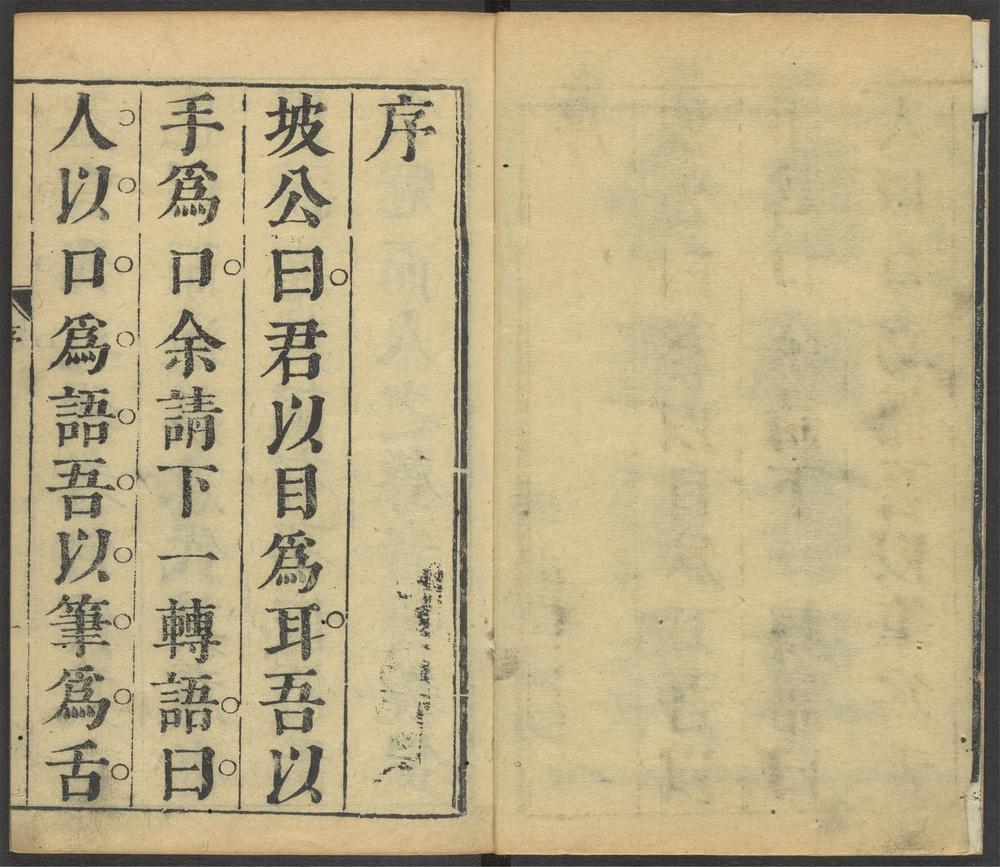 序
坡公曰君以目爲耳吾以
手爲口余請下一轉語曰
人以口爲語吾以筆爲舌